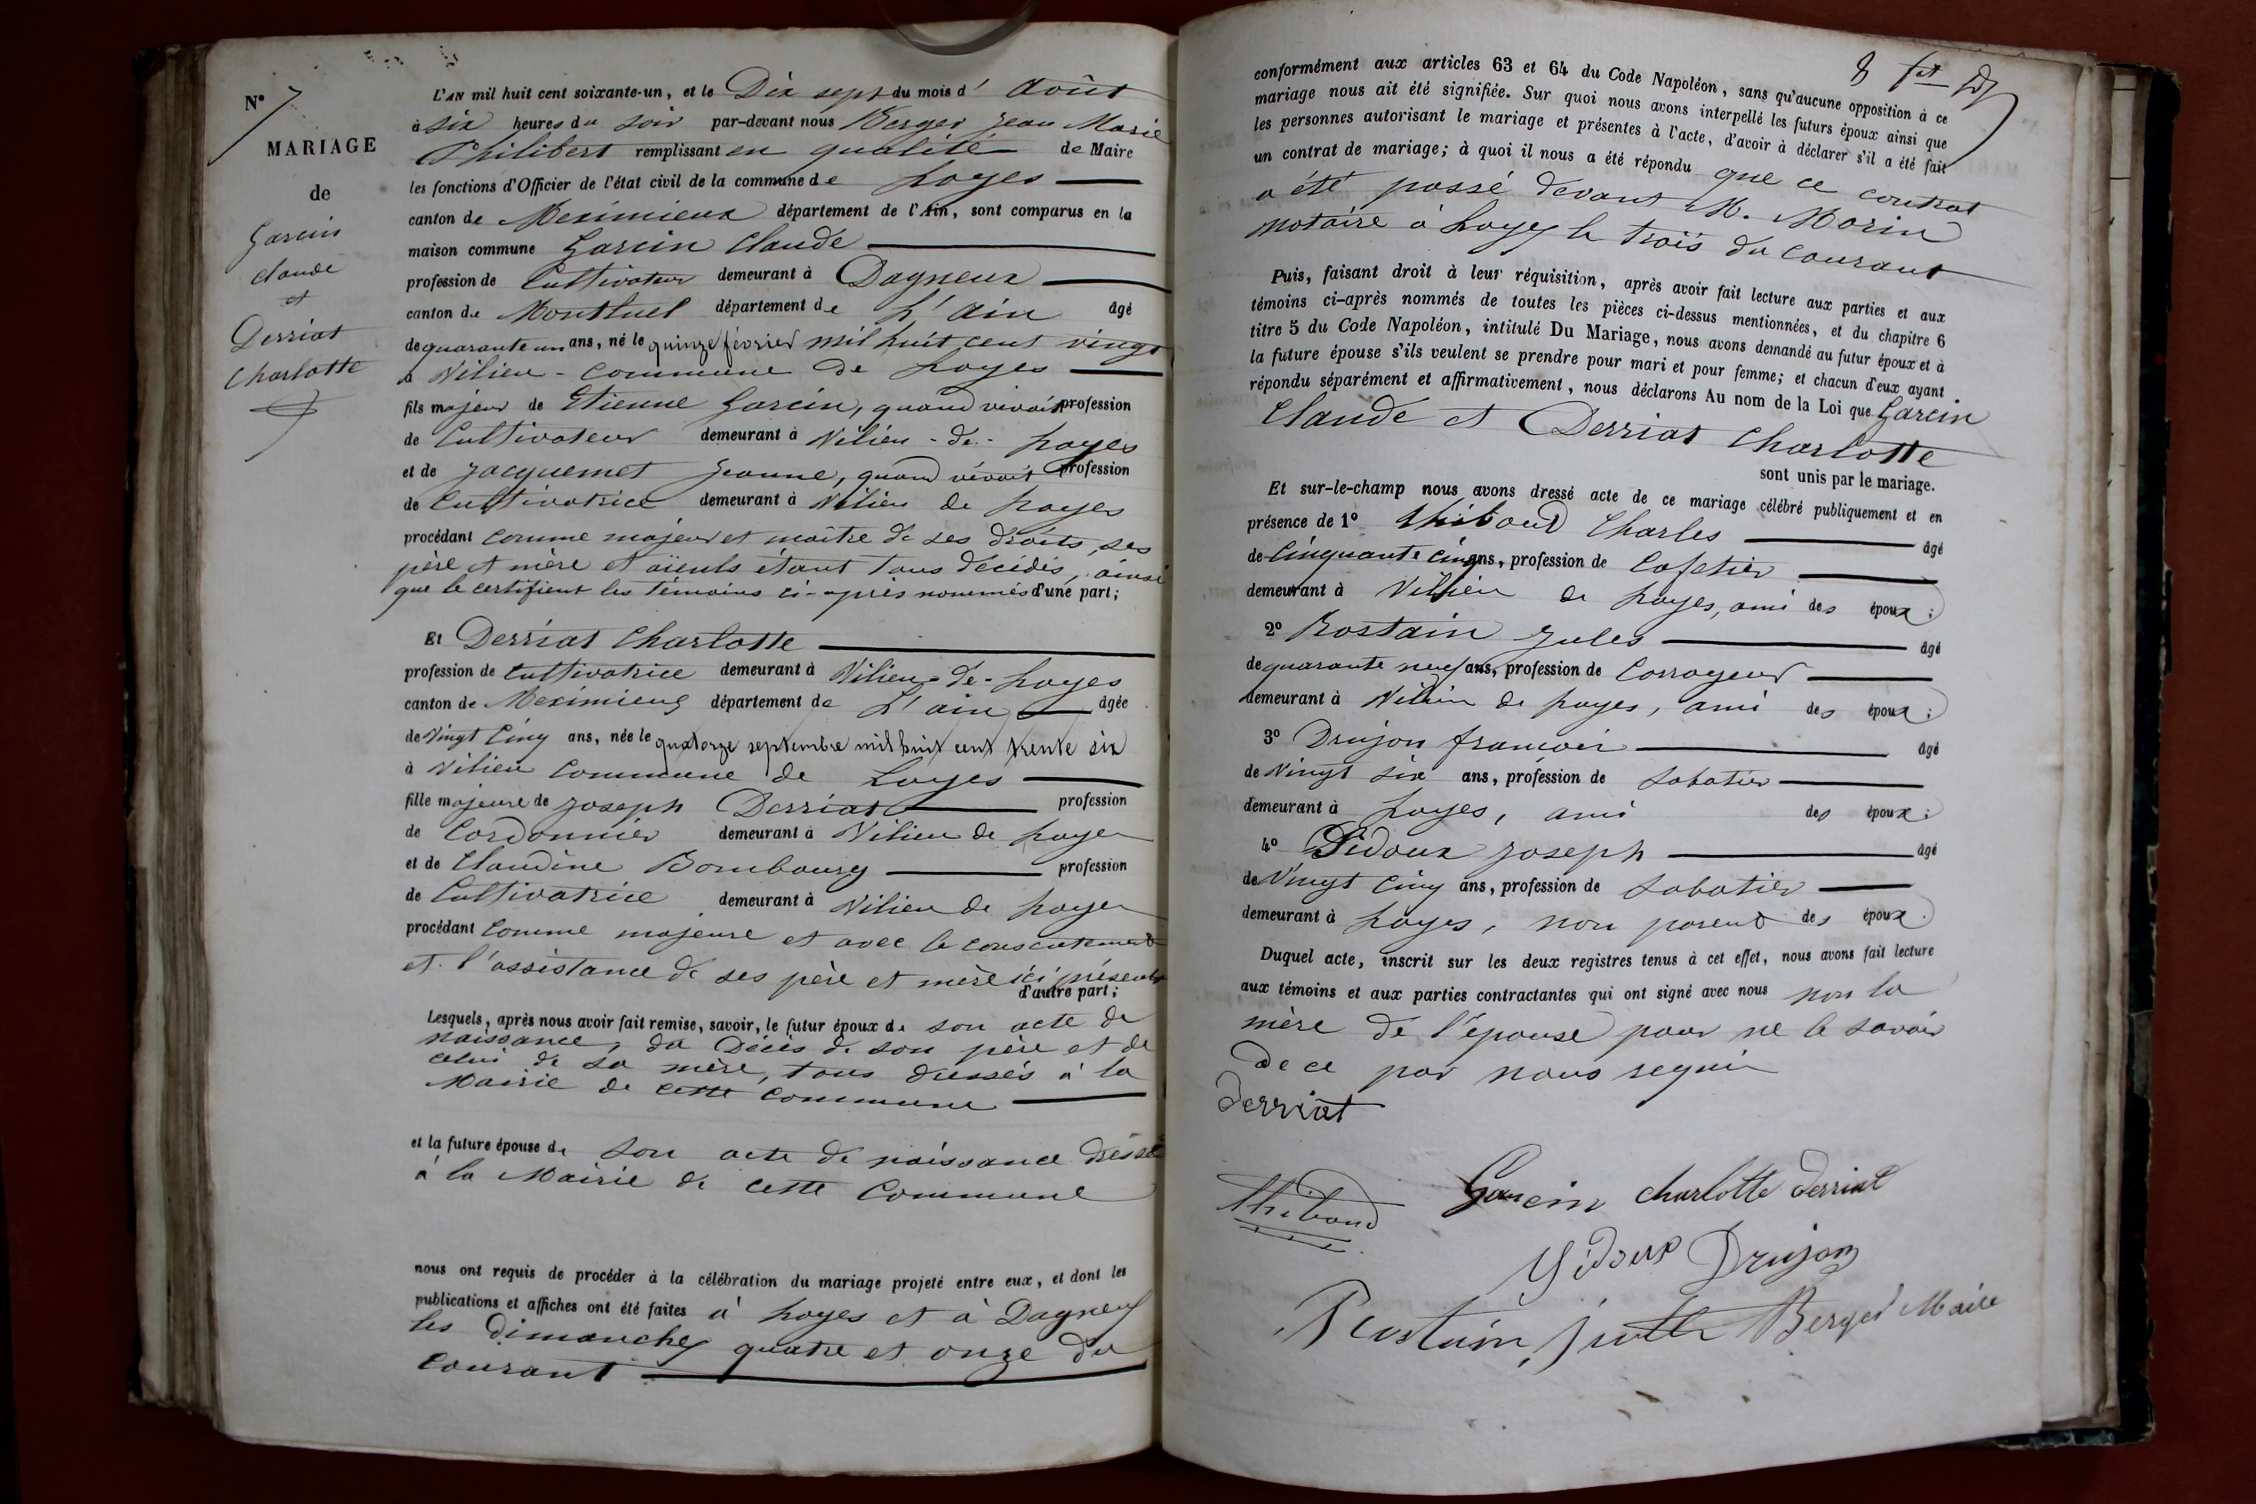 N° 7
MARIAGE
de
Garcin
Claude
et
Derriat
Charlotte
L'AN mil huit cent soixante-un, et le Dix sept du mois d' Août
à six heures du soir par-devant nous Berger Jean Marie
Philibert remplissant en qualité de Maire
les fonctions d'Officier de l'état civil de la commune de Loyes
canton de Meximieux département de l'Ain, sont comparus en la
maison commune Garcin Claude
profession de Cultivateur demeurant à Dagneux
canton de Montluel département de L'ain âgé
de quarante un ans, né le quinze février mil huit cent vingt
à Vilieu - Commune de Loyes
fils majeur de Etienne Garcin, quand vivait profession
de Cultivateur demeurant à Vilieu - de - Loyes
et de Jacquemet Jeanne, quand vivait profession
de Cultivatrice demeurant à Vilieu de Loyes
procédant comme majeur et maître de ses droits, ses
père et mère et aïeuls étant tous décédés, ainsi
que le certifient les témoins ci-après nommés d'une part;
Et Derriat Charlotte
profession de Cultivatrice demeurant à Vilieu - de - Loyes
canton de Meximieux département de L'ain âgée
de Vingt Cinq ans, née le quatorze septembre mil huit cent trente six
à Vilieu Commune de Loyes
fille majeure de Joseph Derriat profession
de Cordonnier demeurant à Vilieu de Loyes
et de Claudine Bombourg profession
de Cultivatrice demeurant à Vilieu de Loyes
procédant Comme majeure et avec le consentement
et l'assistance de ses père et mère ici présents
d'autre part;
Lesquels, après nous avoir fait remise, savoir, le futur époux de son acte de
naissance, du Décès de son père et de
celui de sa mère, tous dressés à la
Mairie de cette Commune
et la future épouse de son acte de naissance dressé
à la Mairie de cette Commune
nous ont requis de procéder à la célébration du mariage projeté entre eux, et dont les
publications et affiches ont été faites à Loyes et à Dagneux
les Dimanches quatre et onze du
Courant
8
conformément aux articles 63 et 64 du Code Napoléon, sans qu'aucune opposition à ce
mariage nous ait été signifiée. Sur quoi nous avons interpellé les futurs époux ainsi que
les personnes autorisant le mariage et présentes à l'acte, d'avoir à déclarer s'il a été fait
un contrat de mariage; à quoi il nous a été répondu que ce contrat
a été passé devant M. Morin
notaire à Loyes le trois du Courant
Puis, faisant droit à leur réquisition, après avoir fait lecture aux parties et aux
témoins ci-après nommés de toutes les pièces ci-dessus mentionnées, et du chapitre 6
titre 5 du Code Napoléon, intitulé Du Mariage, nous avons demandé au futur époux et à
la future épouse s'ils veulent se prendre pour mari et pour femme; et chacun d'eux ayant
répondu séparément et affirmativement, nous déclarons Au nom de la Loi que Garcin
Claude et Derriat Charlotte
sont unis par le mariage.
Et sur-le-champ nous avons dressé acte de ce mariage célébré publiquement et en
présence de 1° Thiboud Charles âgé
de Cinquante cinq ans, profession de Cafetier
demeurant à Vilieu de Loyes, ami des époux;
2° Rostain Jules âgé
de quarante neuf ans, profession de Corroyeur
demeurant à Vilieu de Loyes, ami des époux;
3° Drujon françois âgé
de Vingt six ans, profession de Sabotier
demeurant à Loyes, ami des époux;
4° Didoux Joseph âgé
de Vingt Cinq ans, profession de Sabotier
demeurant à Loyes, non parent des époux.
Duquel acte, inscrit sur les deux registres tenus à cet effet, nous avons fait lecture
aux témoins et aux parties contractantes qui ont signé avec nous non la
mère de l'épouse pour ne le savoir
de ce par nous requis
Derriat
Thiboud Garcin Charlotte Derriat
Drujon
Rostain Berger Maire